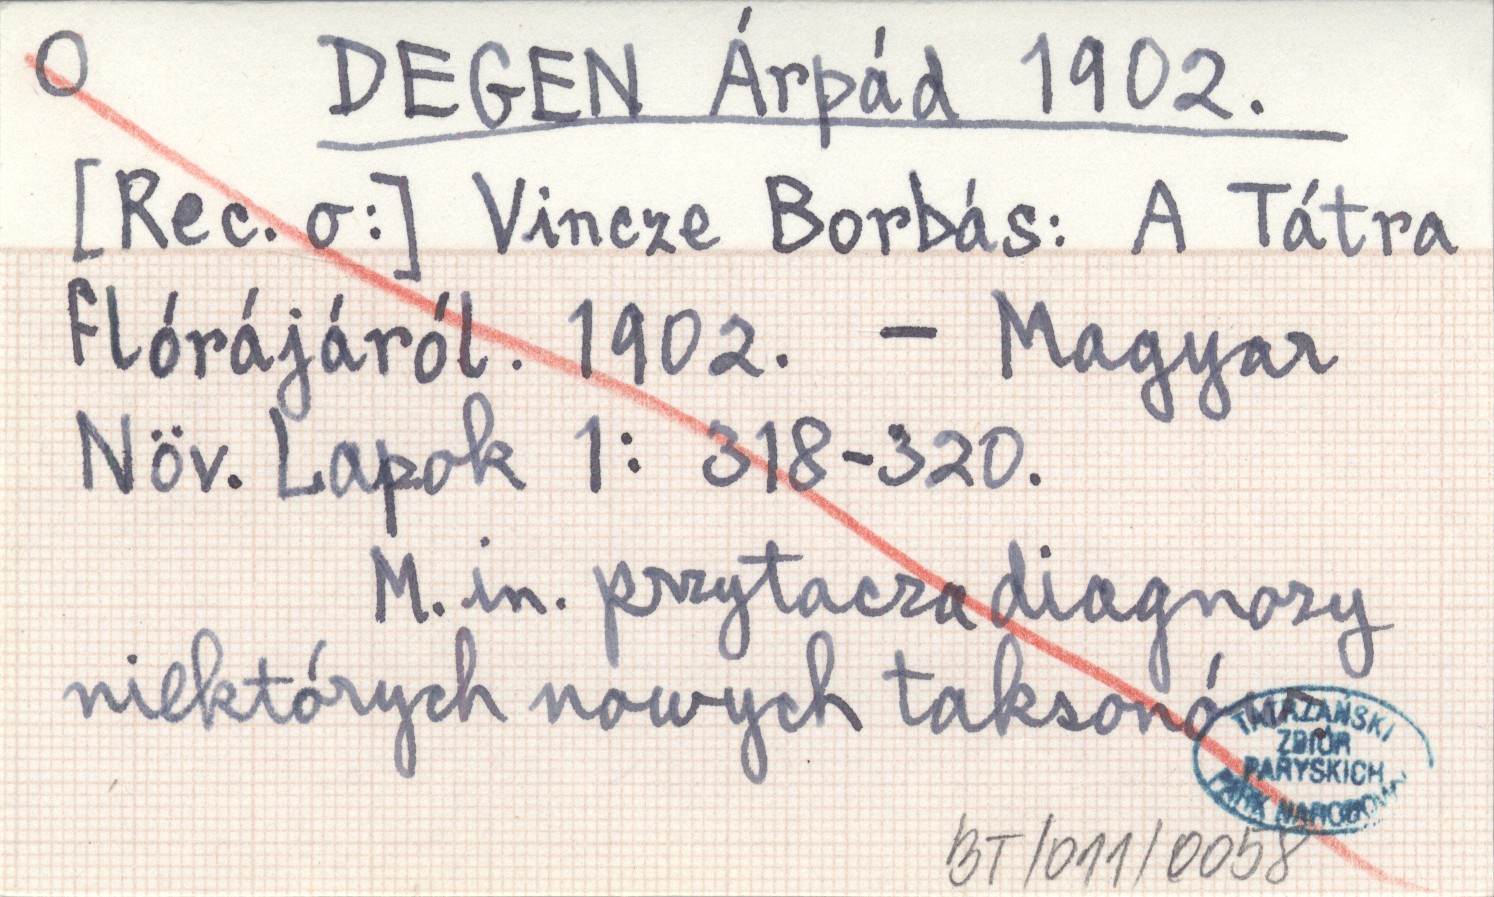 O DEGEN Árpád 1902.
[Rec. o:] Vincze Borbás: A Tátra
flórájáról. 1902. – Magyar
Növ. Lapok 1: 318-320.
M. in. przytacza diagnozy
niektórych nowych taksonów.
TATRZAŃSKI
ZBIÓR
PARYSKICH
PARK NARODOWY
BT/011/0058